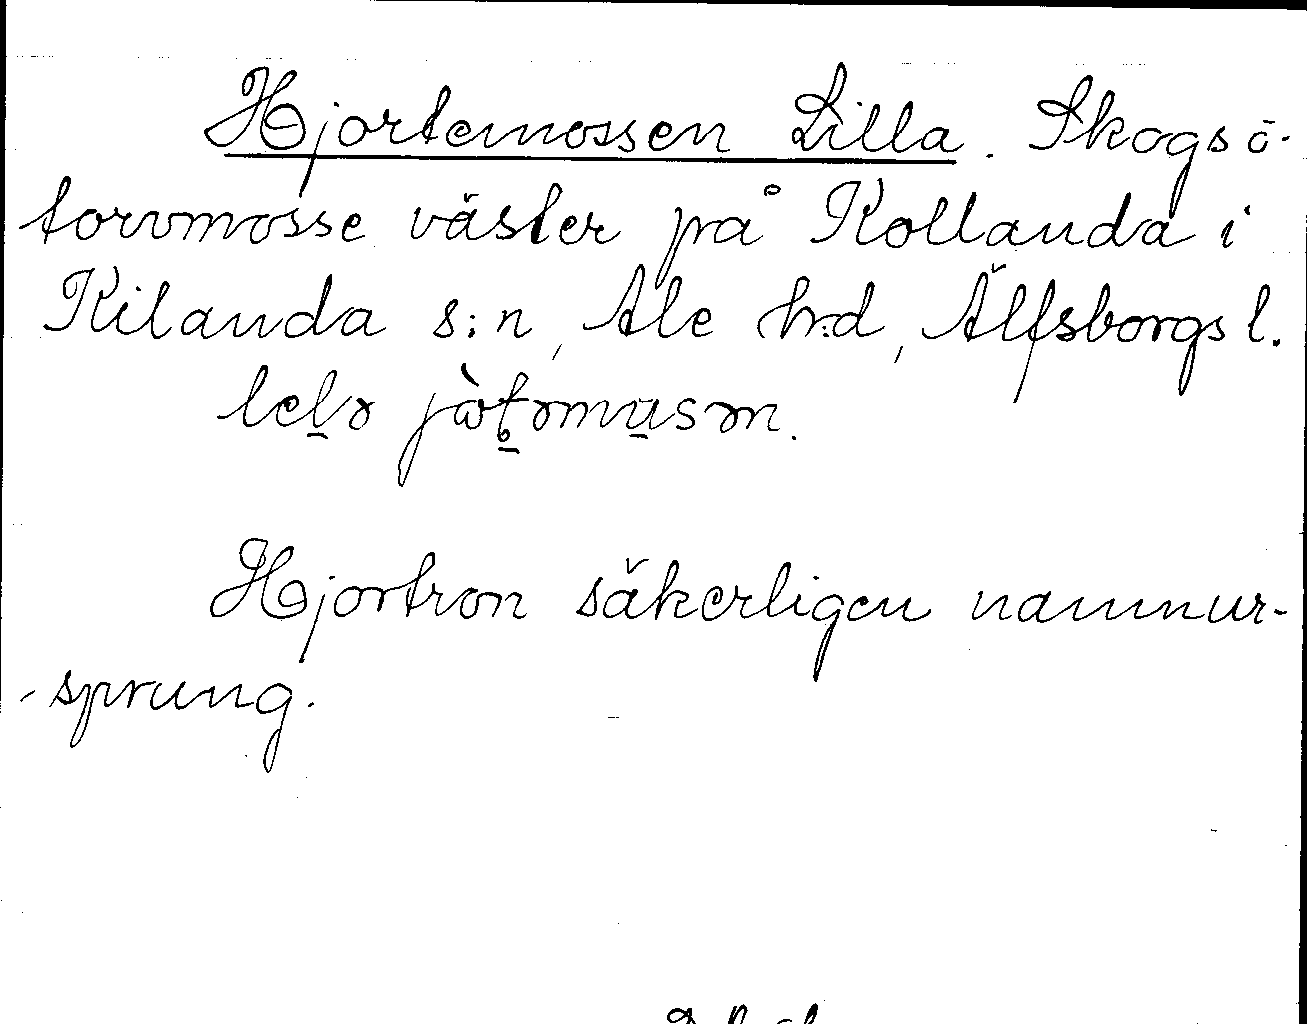 Hjortemossen Lilla. Skogs o.
torvmosse väster på Kollanda i
Kilanda s:n, Ale h:d, Älfsborgs l.
Hjortron säkerligen namnur-
-sprung.